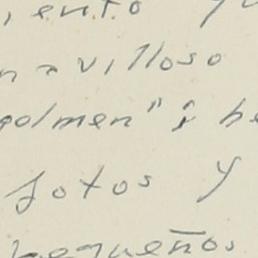 iento
navilloso
golmen" y he
fotos y
pequeños